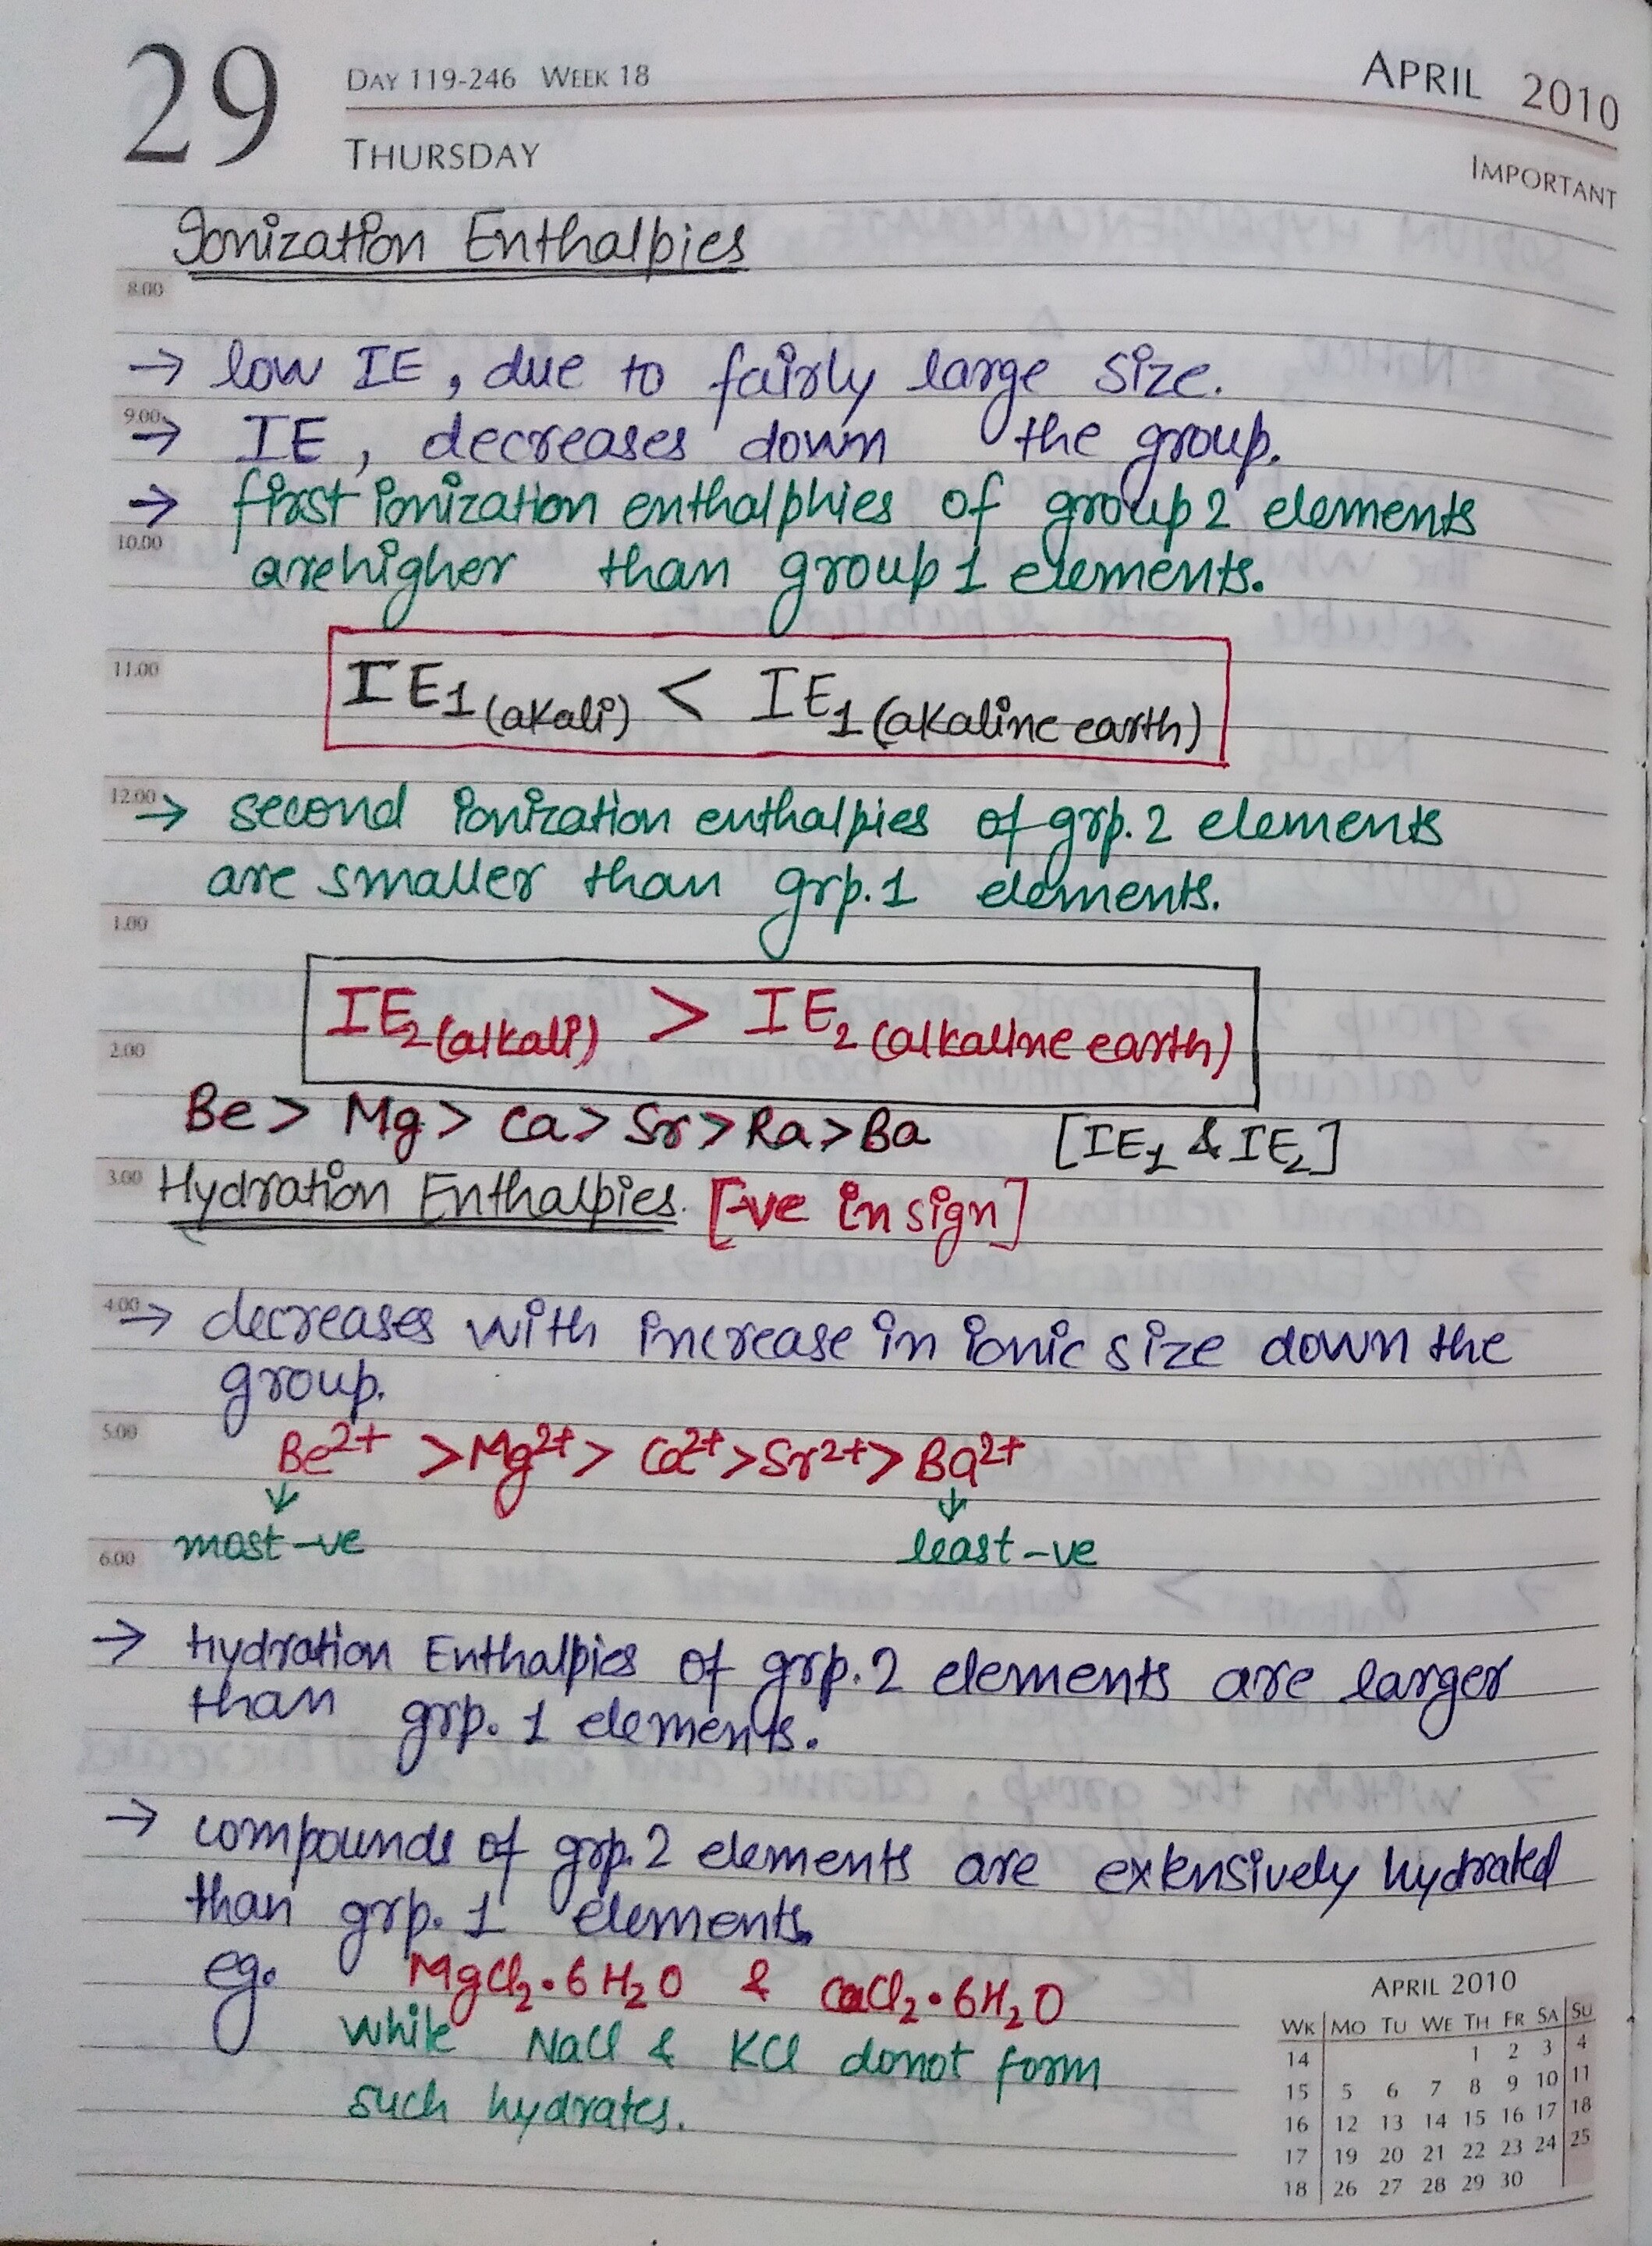 29
DAY 119-246 WEEK 18
APRIL 2010
THURSDAY
IMPORTANT
Ionization Enthalpies
8.00
→ low IE, due to fairly large size.
9.00
→ IE, decreases down the group.
→ first ionization enthalphies of group 2 elements
10.00
are higher than group 1 elements.
11.00
IE1 (akali) < IE1 (akaline earth)
12.00
→ second ionization enthalpies of grp. 2 elements
are smaller than grp. 1 elements.
1.00
IE2 (alkali) > IE2 (alkaline earth)
2.00
Be > Mg > Ca > Sr > Ra > Ba [IE1 & IE2]
3.00
Hydration Enthalpies. [-ve in sign]
4.00
→ decreases with increase in ionic size down the
group.
5.00
Be2+ > Mg2+ > Ca2+ > Sr2+ > Ba2+
↓ ↓
6.00
most -ve least -ve
→ Hydration Enthalpies of grp. 2 elements are larger
than grp. 1 elements.
→ compounds of grp. 2 elements are extensively hydrated
than grp. 1 elements.
eg. MgCl2.6H2O & CaCl2.6H2O
while NaCl & KCl donot form
such hydrates.
APRIL 2010
WK MO TU WE TH FR SA SU
14 1 2 3 4
15 5 6 7 8 9 10 11
16 12 13 14 15 16 17 18
17 19 20 21 22 23 24 25
18 26 27 28 29 30